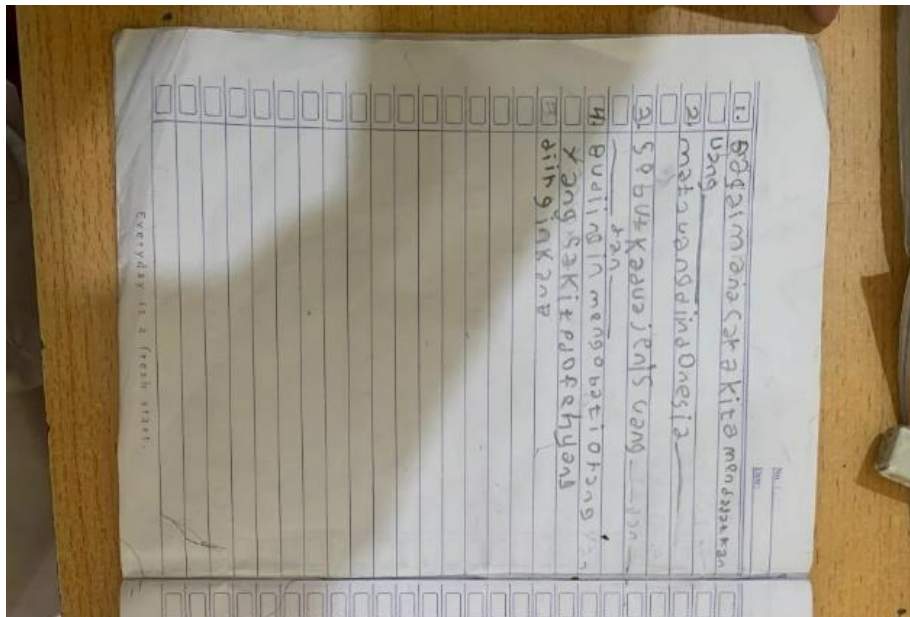 No :
Date :
1. Bagaimana cara kita mendapatkan
uang
2. mata uang di indonesia
3. Sebutkan dua jenis uang dan
dan
4. Budi ingin mengobati orang
yang sakit
diinginkan
Everyday is a fresh start.